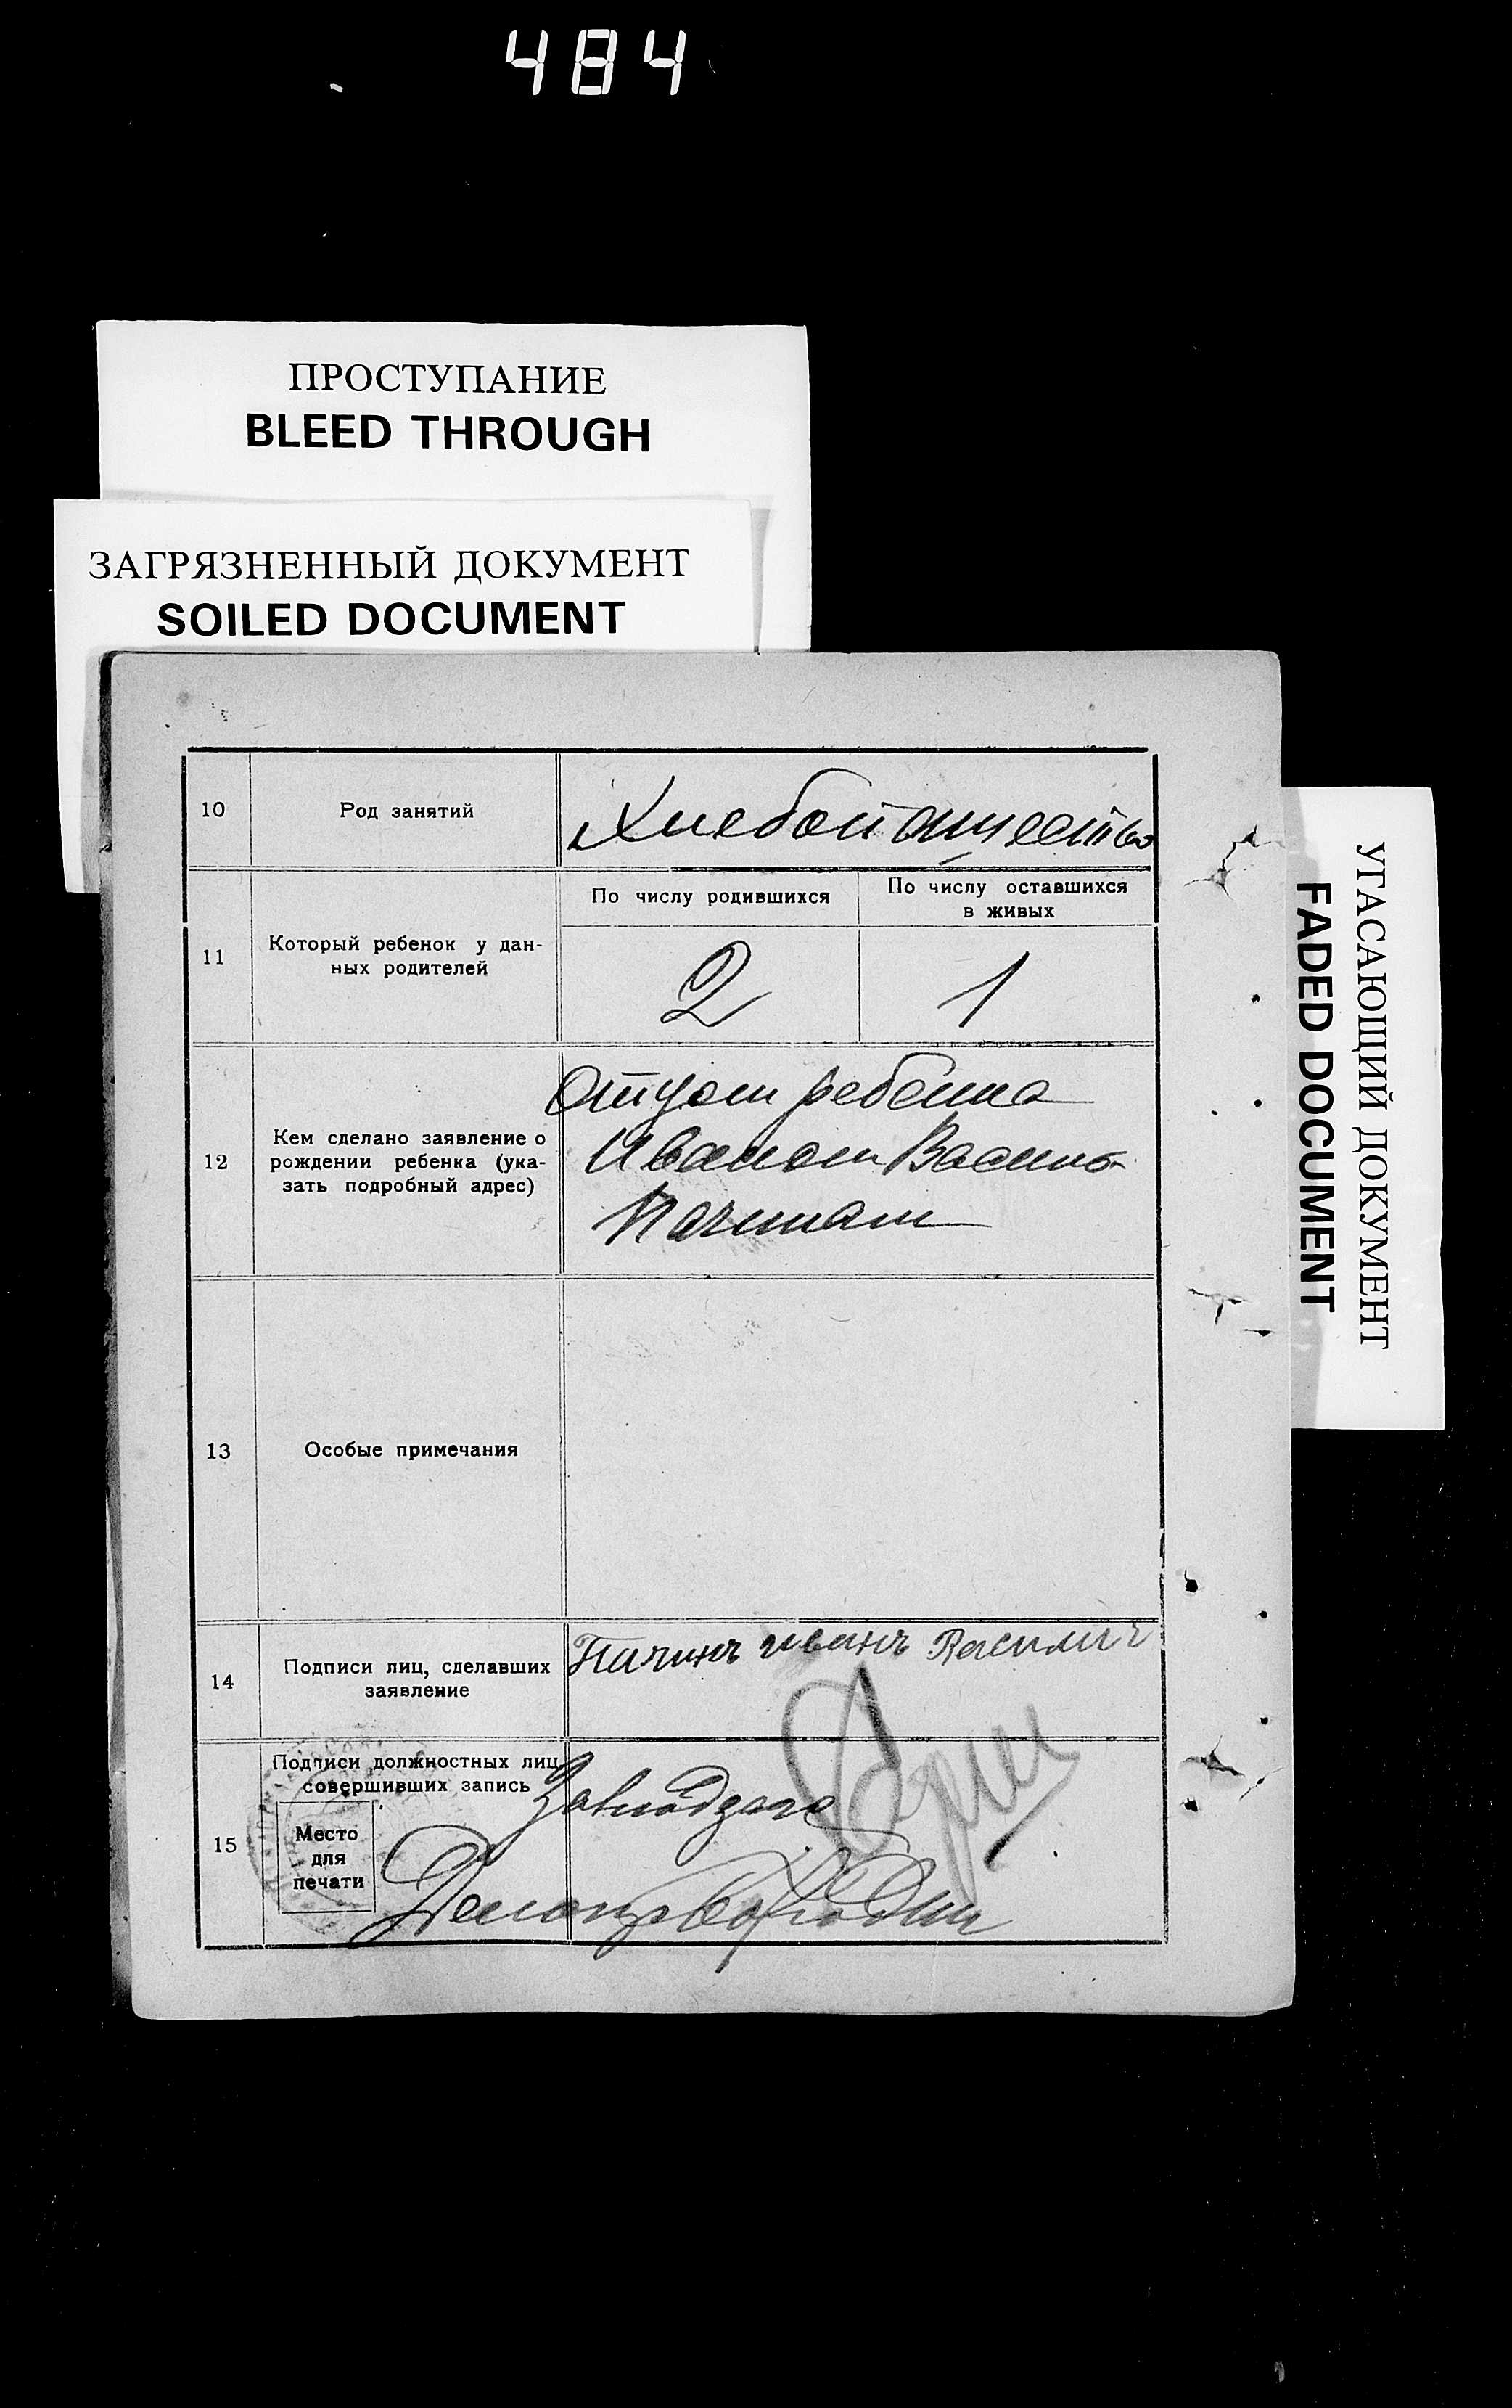 484
ПРОСТУПАНИЕ
BLEED THROUGH
ЗАГРЯЗНЕННЫЙ ДОКУМЕНТ
SOILED DOCUMENT
УГАСАЮЩИЙ ДОКУМЕНТ
FADED DOCUMENT
10
Род занятий
Хлебопашество
11
Который ребенок у дан-
ных родителей
По числу родившихся
2
По числу оставшихся
в живых
1
12
Кем сделано заявление о
рождении ребенка (ука-
зать подробный адрес)
Отцом ребенка
Иваном Василь
Пачиным
13
Особые примечания
14
Подписи лиц, сделавших
заявление
Пачинъ иванъ Василич
15
Подписи должностных лиц,
совершивших запись
Место
для
печати